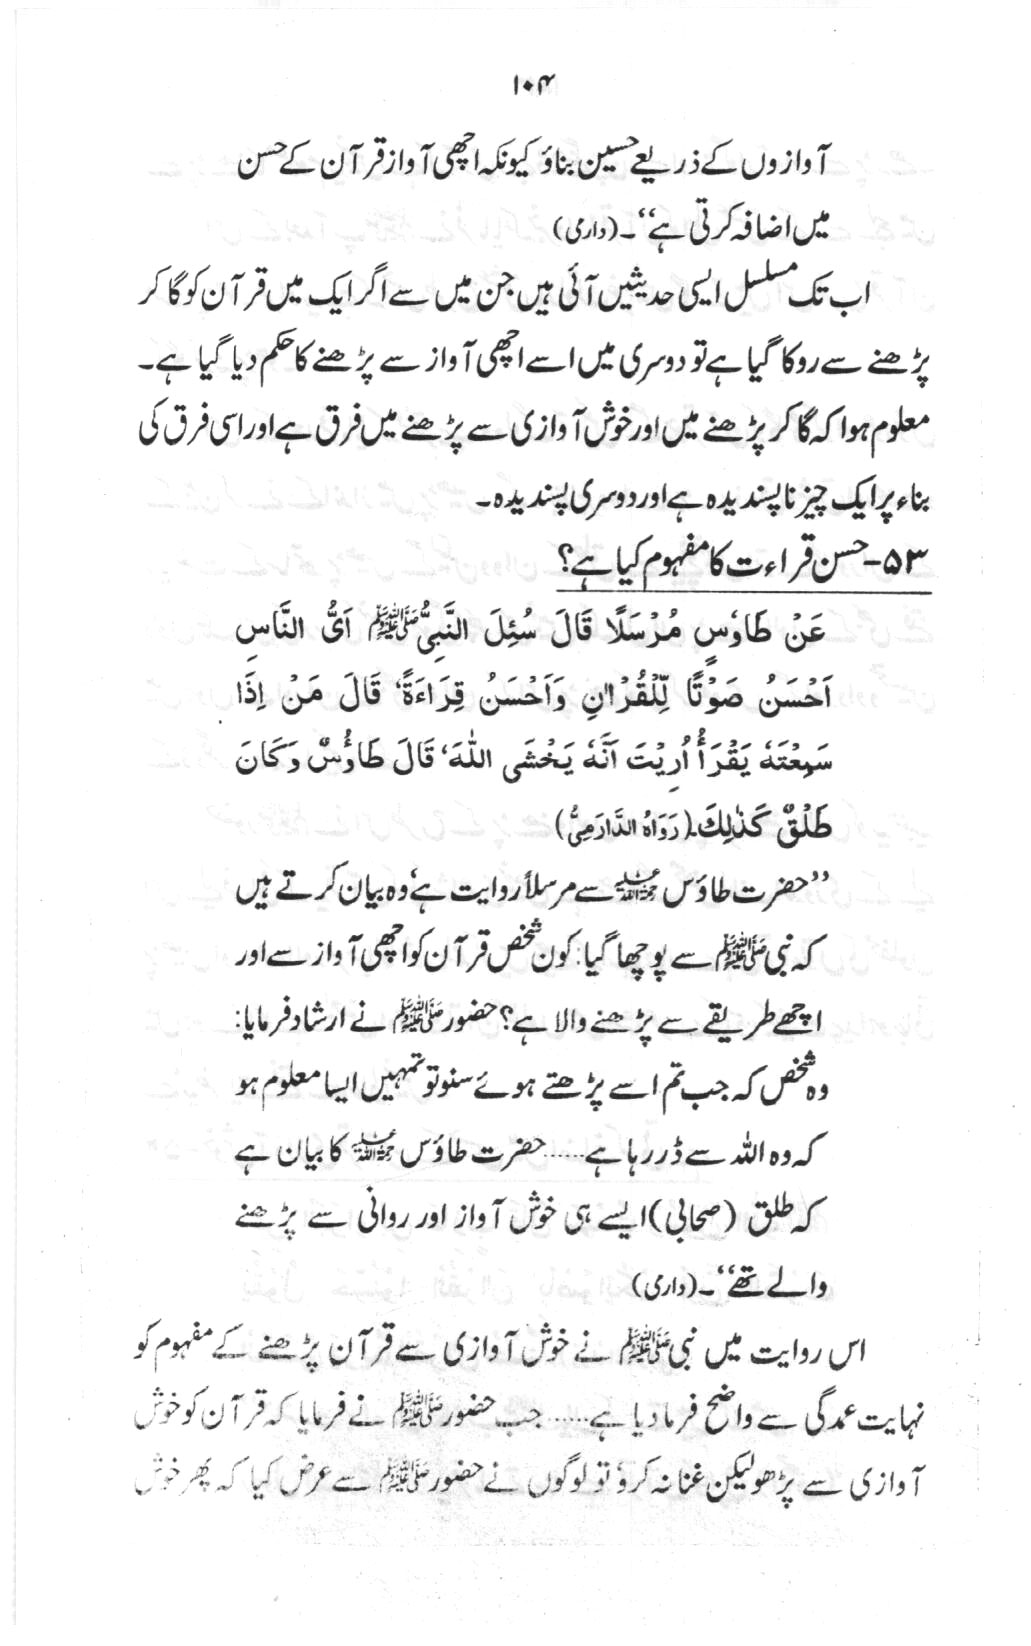 ۱۰۴
آوازوں کے ذریعے حسین بناؤ کیونکہ اچھی آواز قرآن کے حسن
میں اضافہ کرتی ہے‘‘۔ (دارمی)
اب تک مسلسل ایسی حدیثیں آئی ہیں جن میں سے اگر ایک میں قرآن کو گا کر
پڑھنے سے روکا گیا ہے تو دوسری میں اسے اچھی آواز سے پڑھنے کا حکم دیا گیا ہے۔
معلوم ہوا کہ گا کر پڑھنے میں اور خوش آوازی سے پڑھنے میں فرق ہے اور اسی فرق کی
بناء پر ایک چیز ناپسندیدہ ہے اور دوسری پسندیدہ۔
۵۳- حسن قراءت کا مفہوم کیا ہے؟
عَنْ طَاوٗسٍ مُرْسَلًا قَالَ سُئِلَ النَّبِيُّ ﷺ اَيُّ النَّاسِ
اَحْسَنُ صَوْتًا لِّلْقُرْاٰنِ وَاَحْسَنُ قِرَاءَةً‘ قَالَ مَنْ اِذَا
سَمِعْتَهٗ يَقْرَأُ اُرِيْتَ اَنَّهٗ يَخْشَى اللّٰهَ‘ قَالَ طَاوٗسٌ وَكَانَ
طَلْقٌ كَذٰلِكَ۔ (رَوَاهُ الدَّارَمِيُّ)
’’حضرت طاؤس رحمۃ اللہ علیہ سے مرسلاً روایت ہے‘ وہ بیان کرتے ہیں
کہ نبی ﷺ سے پوچھا گیا: کون شخص قرآن کو اچھی آواز سے اور
اچھے طریقے سے پڑھنے والا ہے؟ حضور ﷺ نے ارشاد فرمایا:
وہ شخص کہ جب تم اسے پڑھتے ہوئے سنو تو تمہیں ایسا معلوم ہو
کہ وہ اللہ سے ڈر رہا ہے…… حضرت طاؤس رحمۃ اللہ علیہ کا بیان ہے
کہ طلق (صحابی) ایسے ہی خوش آواز اور روانی سے پڑھنے
والے تھے‘‘۔ (دارمی)
اس روایت میں نبی ﷺ نے خوش آوازی سے قرآن پڑھنے کے مفہوم کو
نہایت عمدگی سے واضح فرما دیا ہے…… جب حضور ﷺ نے فرمایا کہ قرآن کو خوش
آوازی سے پڑھو لیکن غنا نہ کرو‘ تو لوگوں نے حضور ﷺ سے عرض کیا کہ پھر خوش